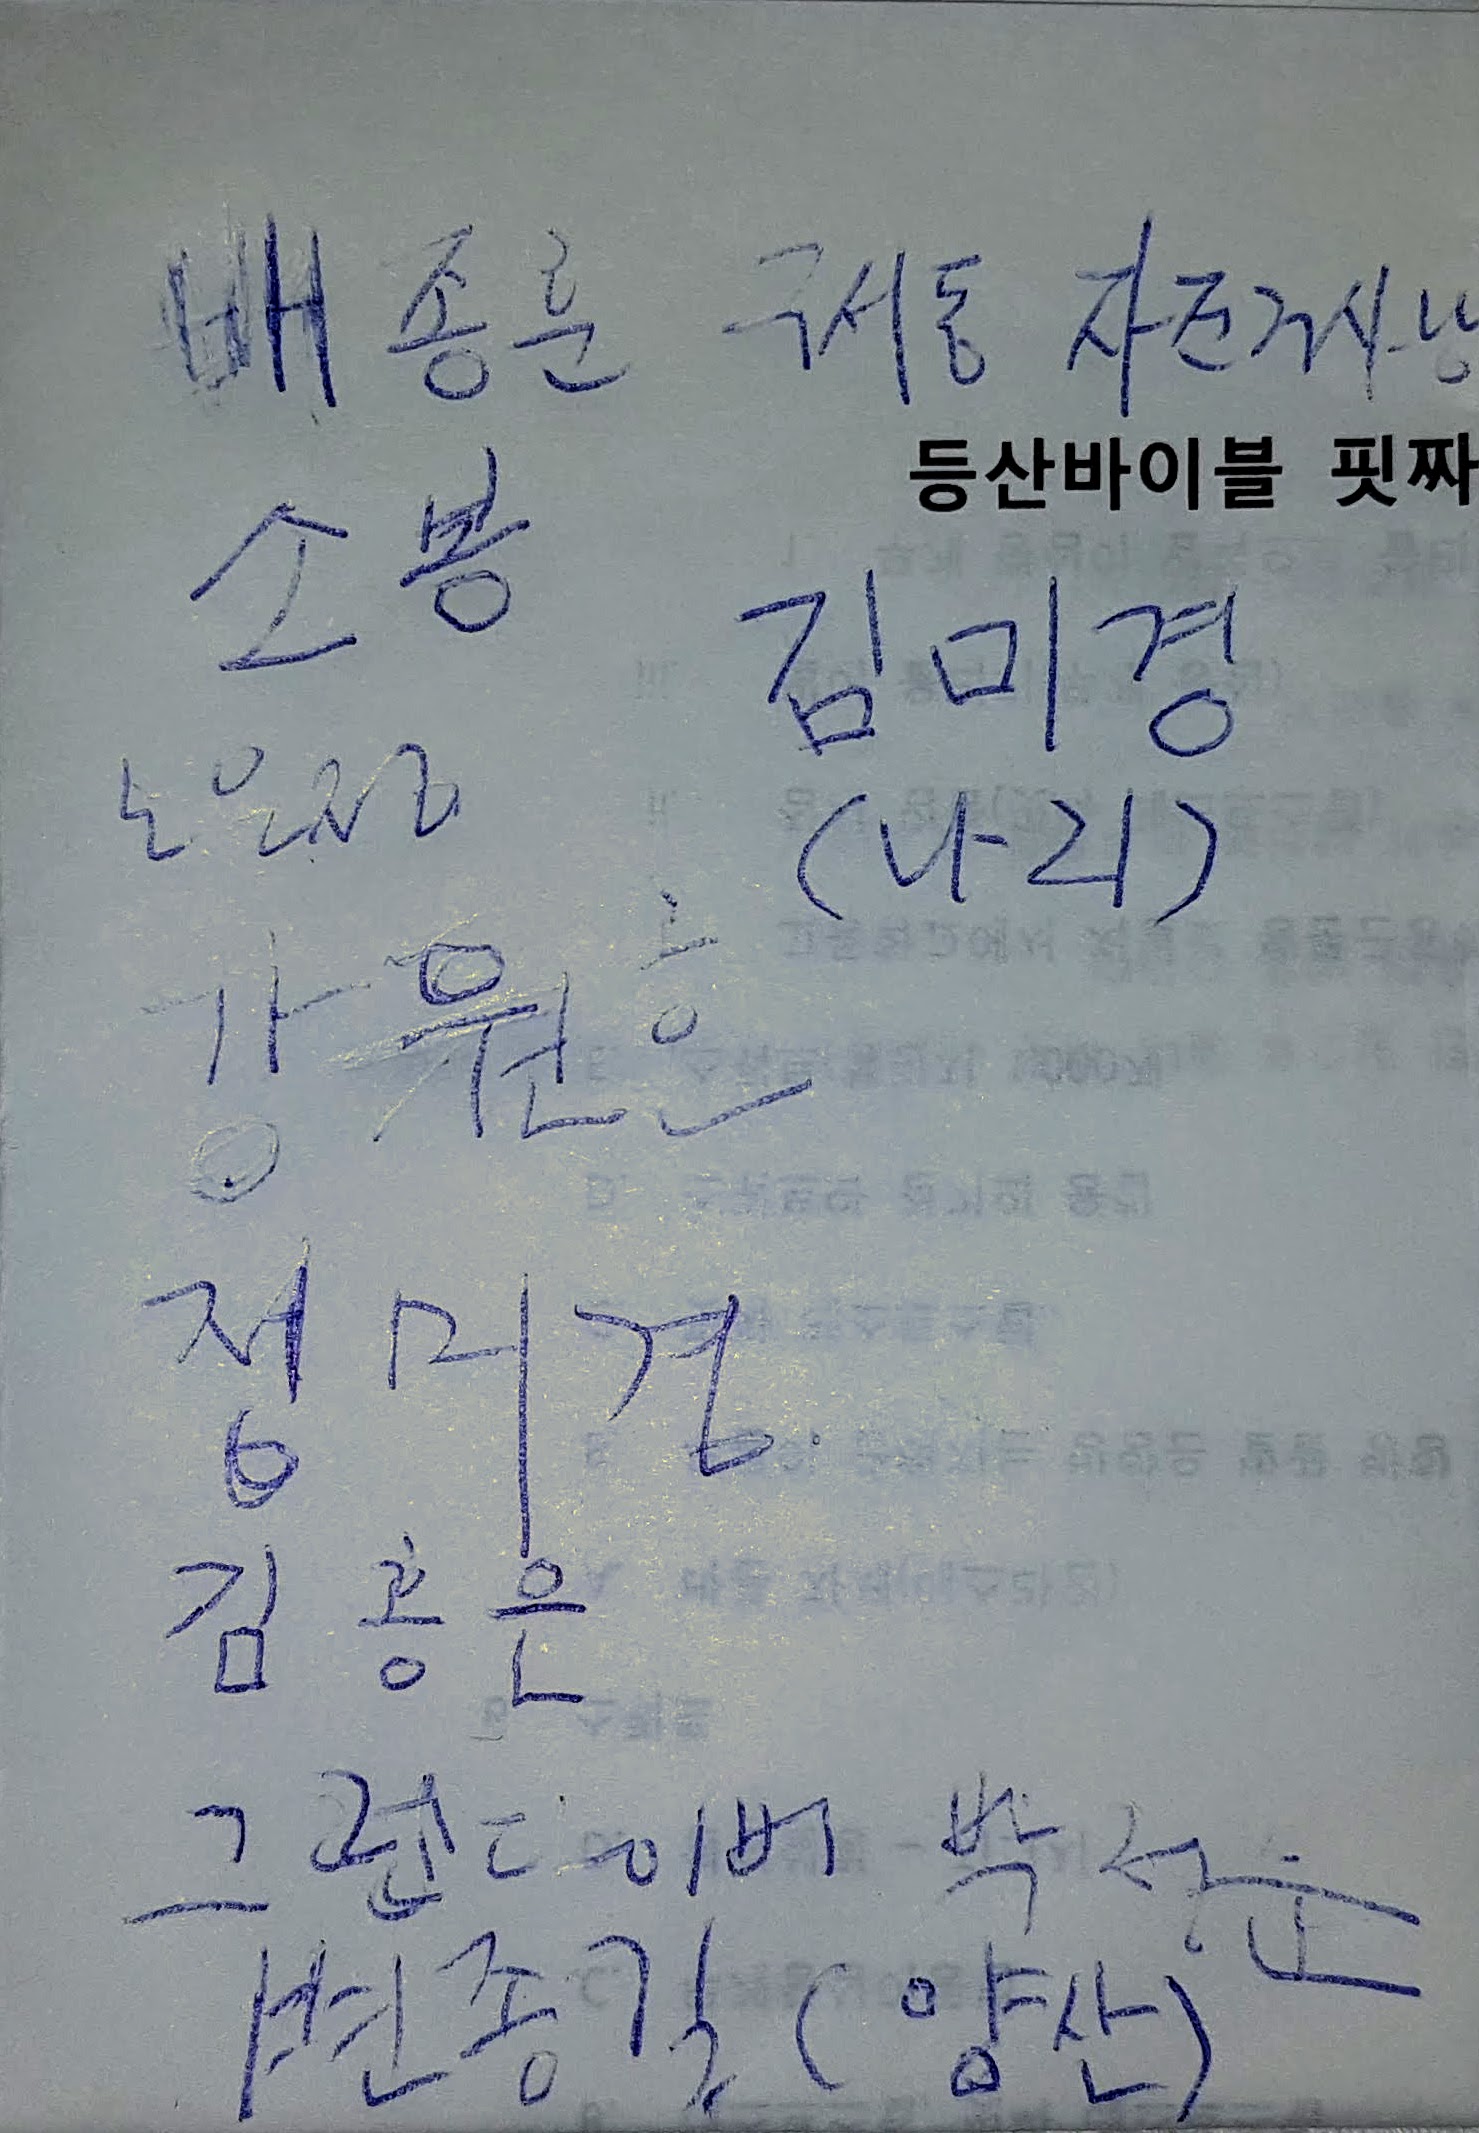 배종훈 구서동 자전거사랑
등산바이블 핏짜
소봉
김미경
노은정
(나리)
강원흔
정미경
김홍은
그랜다이버 박정순
변종길 (양산)